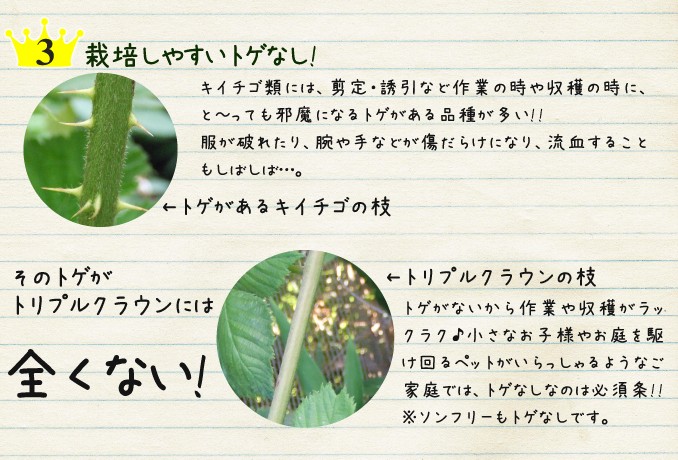 3 栽培しやすいトゲなし!
キイチゴ類には、剪定・誘引など作業の時や収穫の時に、
と～っても邪魔になるトゲがある品種が多い!!
服が破れたり、腕や手などが傷だらけになり、流血すること
もしばしば…。
←トゲがあるキイチゴの枝
そのトゲが
トリプルクラウンには
全くない!
←トリプルクラウンの枝
トゲがないから作業や収穫がラッ
クラク♪小さなお子様やお庭を駆
け回るペットがいらっしゃるようなご
家庭では、トゲなしなのは必須条!!
※ソンフリーもトゲなしです。